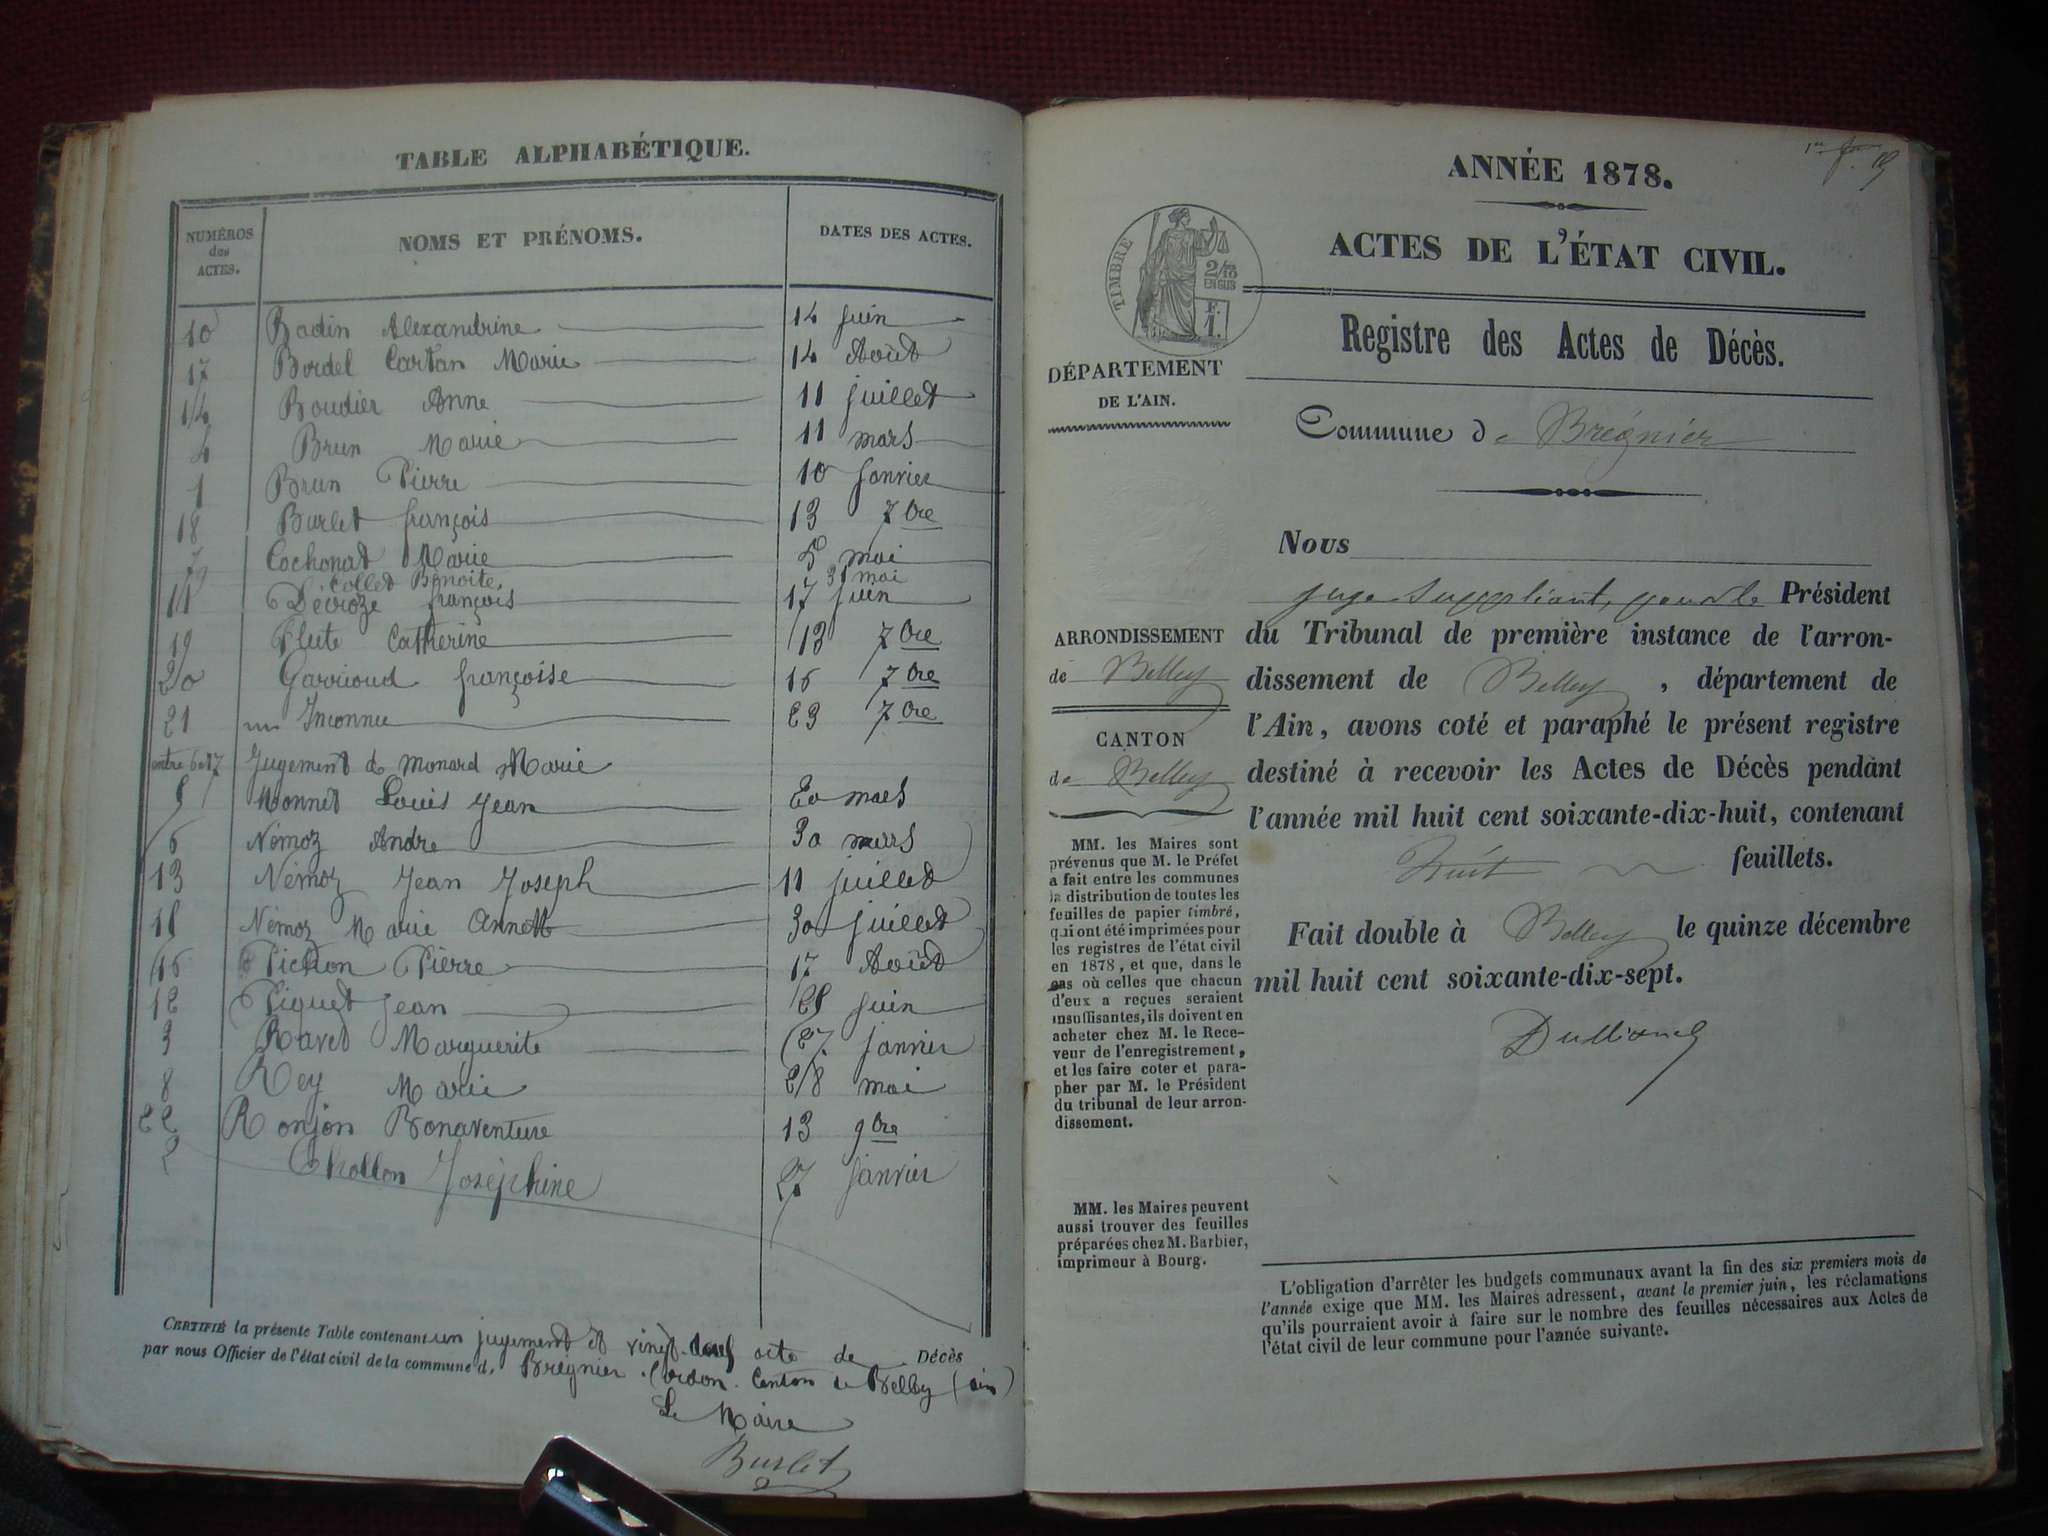 TABLE ALPHABÉTIQUE.
NUMÉROS des ACTES. NOMS ET PRÉNOMS. DATES DES ACTES.
10 Badin Alexandrine 14 juin
17 Bordel Cartan Marie 14 Août
14 Boudier Anne 11 juillet
4 Brun Marie 11 mars
1 Brun Pierre 10 janvier
18 Burlet françois 13 7bre
7 Cochonat Marie 5 mai
9 Collet Benoite 31 mai
11 Décroze françois 17 juin
19 Flute Catherine 13 7bre
20 Garrioud françoise 16 7bre
21 un Inconnu 23 7bre
entre 6 et 7 Jugement de Monard Marie
5 Monnet Louis Jean 20 mars
6 Némoz Andre 30 mars
13 Némoz Jean Joseph 11 juillet
15 Némoz Marie Annette 30 juillet
16 Pichon Pierre 17 Août
12 Piquet Jean 25 juin
3 Ravet Marguerite 27 janvier
8 Rey Marie 28 mai
22 Ronjon Bonaventure 13 9bre
2 Chollon Joséphine 27 janvier
CERTIFIÉ la présente Table contenant un jugement et vingt-deux acte de Décès
par nous Officier de l'état civil de la commune d. Brégnier-Cordon. Canton de Belley (ain)
Le Maire
Burlet
ANNÉE 1878.
ACTES DE L'ÉTAT CIVIL.
TIMBRE
2/10 EN SUS
F. 1.
Registre des Actes de Décès.
DÉPARTEMENT
DE L'AIN.
Commune de Brégnier
Nous
juge suppléant, pour le Président
ARRONDISSEMENT
de Belley
CANTON
de Belley
du Tribunal de première instance de l'arron-
dissement de Belley, département de
l'Ain, avons coté et paraphé le présent registre
destiné à recevoir les Actes de Décès pendant
l'année mil huit cent soixante-dix-huit, contenant
Huit feuillets.
Fait double à Belley le quinze décembre
mil huit cent soixante-dix-sept.
MM. les Maires sont
prévenus que M. le Préfet
a fait entre les communes
la distribution de toutes les
feuilles de papier timbré,
qui ont été imprimées pour
les registres de l'état civil
en 1878, et que, dans le
cas où celles que chacun
d'eux a reçues seraient
insuffisantes, ils doivent en
acheter chez M. le Rece-
veur de l'enregistrement,
et les faire coter et para-
pher par M. le Président
du tribunal de leur arron-
dissement.
MM. les Maires peuvent
aussi trouver des feuilles
préparées chez M. Barbier,
imprimeur à Bourg.
L'obligation d'arrêter les budgets communaux avant la fin des six premiers mois de
l'année exige que MM. les Maires adressent, avant le premier juin, les réclamations
qu'ils pourraient avoir à faire sur le nombre des feuilles nécessaires aux Actes de
l'état civil de leur commune pour l'année suivante.